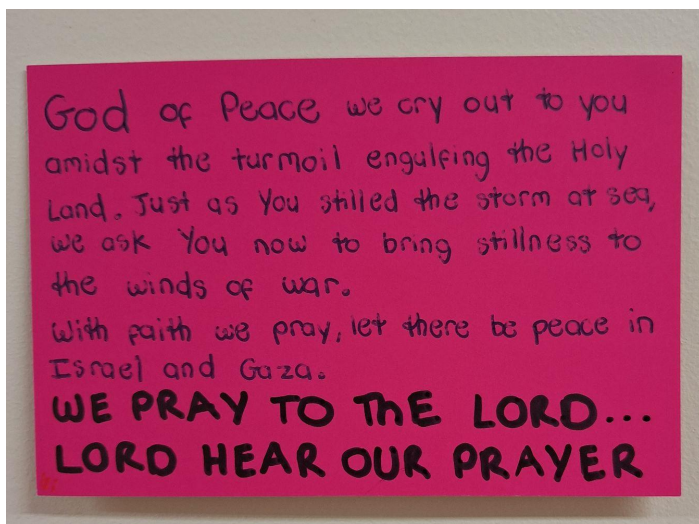 God of Peace we cry out to you
amidst the turmoil engulfing the Holy
Land. Just as You stilled the storm at sea,
we ask You now to bring stillness to
the winds of war.
With faith we pray, let there be peace in
Israel and Gaza.
WE PRAY TO ThE LORD...
LORD HEAR OUR PRAYER